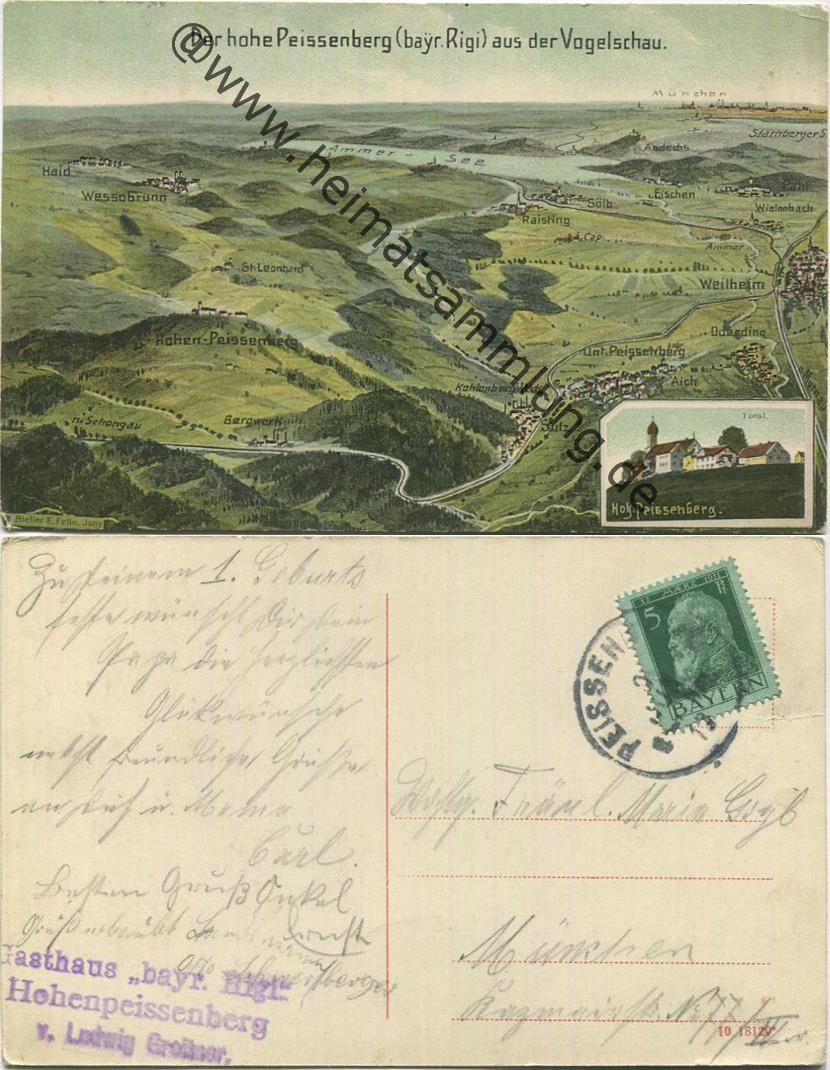 Der hohe Peissenberg (bayr. Rigi) aus der Vogelschau.
@www.heimatsammlung.de
München
Starnberger S.
Ammer - See
Andechs
Haid
Wessobrunn
Eischen
Pähl
Wielenbach
Sölb
Raisting
Cap.
Ammer
St. Leonhard
Weilheim
Hohen-Peissenberg
Oderding
Unt. Peissenberg
Aich
Kohlenbergwerk
n. Schongau
Bergwerk
Sulz
Total.
Hoh. Peissenberg.
Atelier E. Felle, Isny
Zu Deinem 1. Geburts
feste wünscht Dir Dein
Papa die herzlichsten
Glükwünsche
nebst freundliche Grüsse
an Dich u. Mama
Carl.
Besten Gruß Onkel
Ernst
Gasthaus „bayr. Rigi"
Hohenpeissenberg
v. Ludwig
12. MÄRZ 1911
5 Pf
BAYERN
PEISSEN
Fräul. Maria
München
Kazmairstr. No 77/III
10 18129